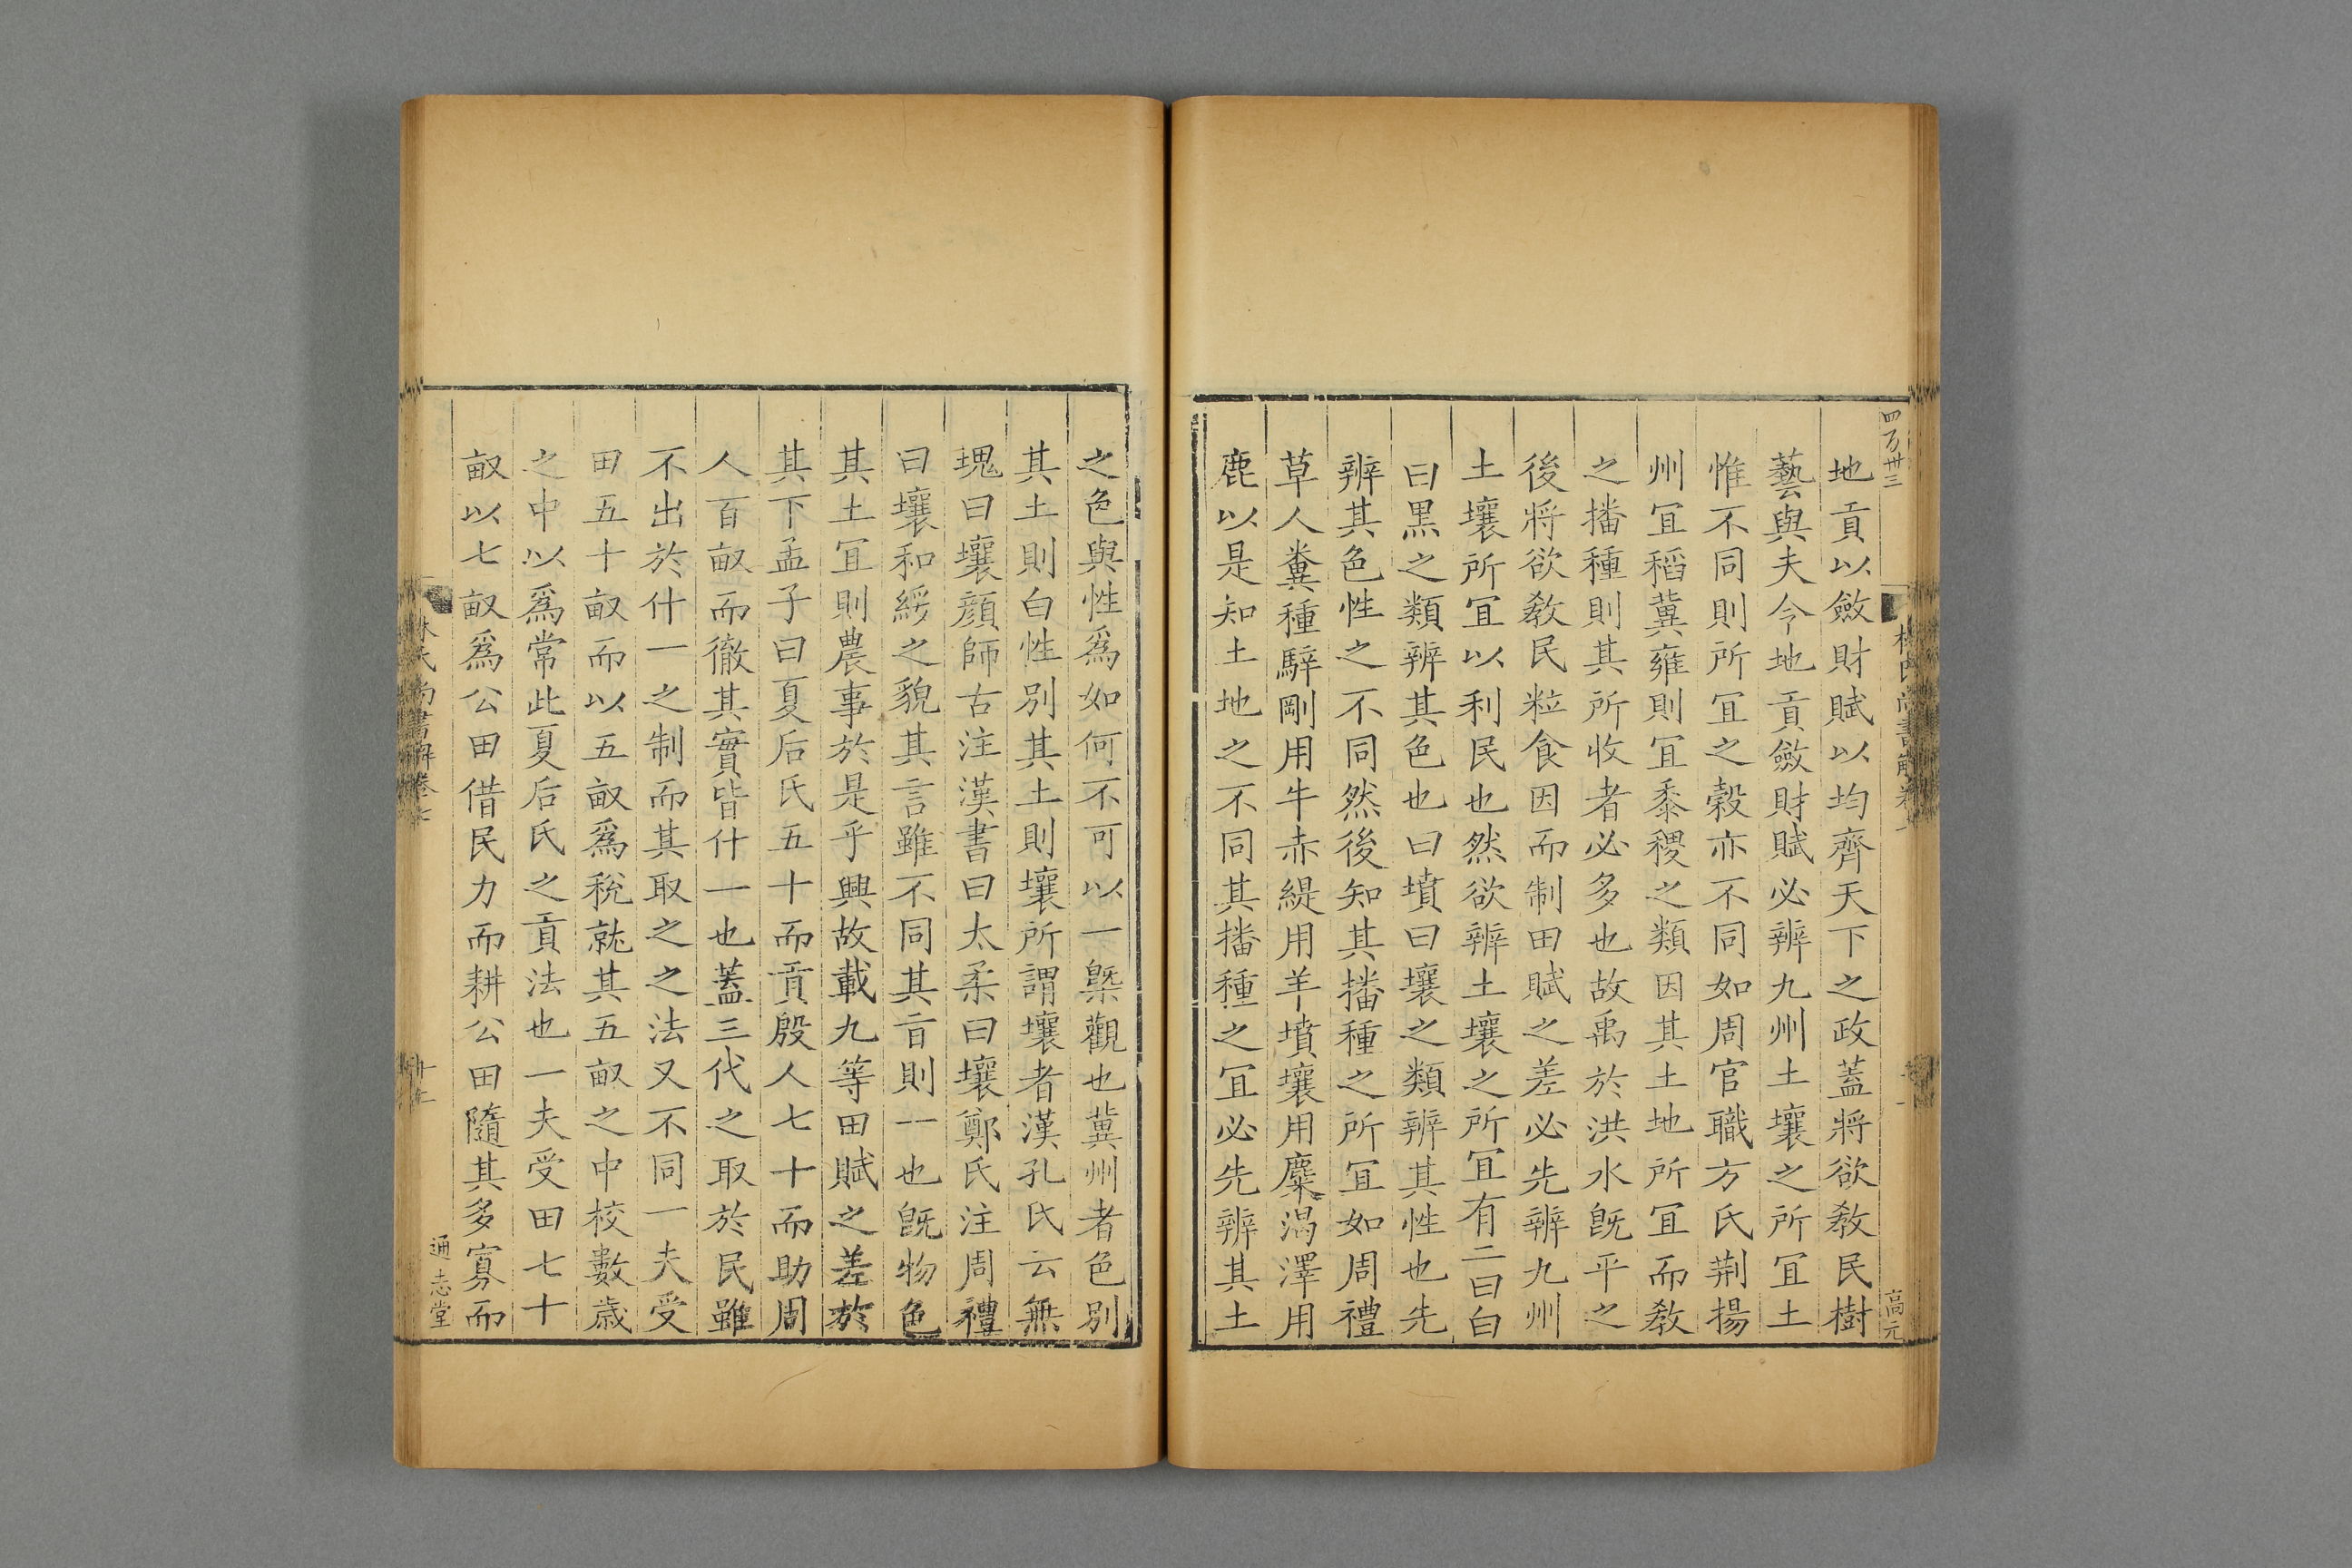 四百卅三
高元
地貢以斂財賦以均齊天下之政蓋將欲教民樹
藝與夫令地貢斂財賦必辨九州土壤之所宜土
惟不同則所宜之穀亦不同如周官職方氏荆揚
州宜稻冀雍則宜黍稷之類因其土地所宜而教
之播種則其所收者必多也故禹於洪水旣平之
後將欲教民粒食因而制田賦之差必先辨九州
土壤所宜以利民也然欲辨土壤之所宜有二曰白
曰黑之類辨其色也曰墳曰壤之類辨其性也先
辨其色性之不同然後知其播種之所宜如周禮
草人糞種騂剛用牛赤緹用羊墳壤用麋渴澤用
鹿以是知土地之不同其播種之宜必先辨其土
之色與性爲如何不可以一槩觀也冀州者色别
其土則白性别其土則壤所謂壤者漢孔氏云無
塊曰壤顔師古注漢書曰太柔曰壤鄭氏注周禮
曰壤和緩之貌其言雖不同其㫖則一也旣物色
其土宜則農事於是乎興故載九等田賦之差於
其下孟子曰夏后氏五十而貢殷人七十而助周
人百畝而徹其實皆什一也蓋三代之取於民雖
不出於什一之制而其取之之法又不同一夫受
田五十畝而以五畝爲稅就其五畝之中校數歲
之中以爲常此夏后氏之貢法也一夫受田七十
畝以七畝爲公田借民力而耕公田隨其多寡而
林氏尚書解卷七
通志堂